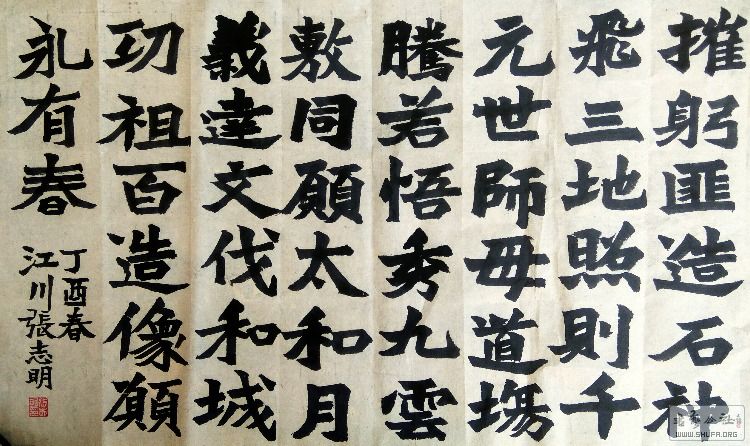 摧躬匪造石神
飛三地照則千
元世師毋道塲
騰若悟秀九雲
敷同願太和月
義達文伐和城
㓛祖百造像願
永有春
丁酉春
江川張志明
WWW.SHUFA.ORG